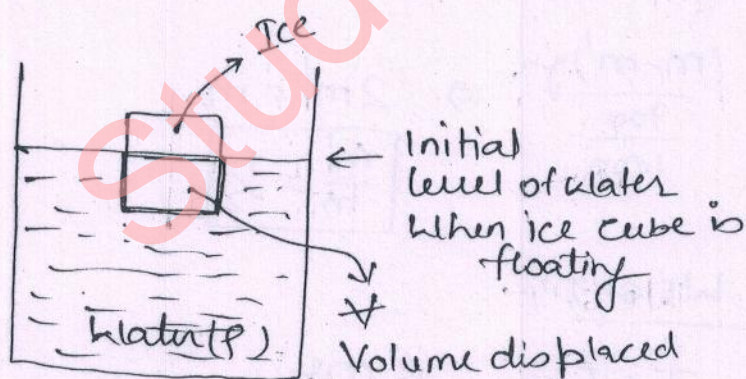 Ice
Initial
level of water
When ice cube is
floating
V
Water(ρ)
Volume displaced
Stud